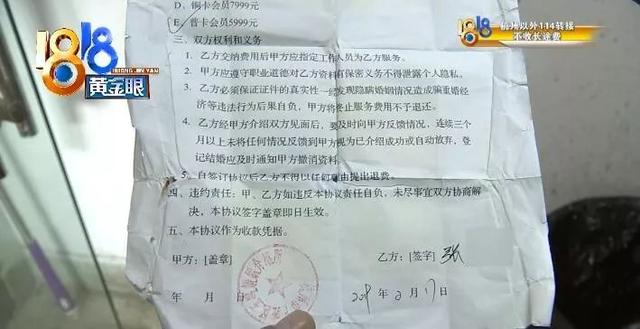 D、铜卡会员7999元
E、普卡会员5999元
三、双方权利和义务
1、乙方交纳费用后甲方应指定工作人员为乙方服务。
2、甲方应遵守职业道德对乙方资料有保密义务不得泄露个人隐私。
3、乙方必须保证证件的真实性一经发现隐瞒婚姻情况造成骗重婚经
济等违法行为后果自负，甲方将终止服务费用不予退还。
4、乙方经甲方介绍双方见面后，要及时向甲方反馈情况，连续三个
月以上未将任何情况反馈到甲方视为已介绍成功或自动放弃，登
记结婚应及时通知甲方撤消资料。
5、自签订协议后乙方不得以任何理由提出退费。
四、违约责任：甲、乙方如违反本协议责任自负，未尽事宜双方协商解
决，本协议签字盖章即日生效。
五、本协议作为收款凭据。
甲方：[盖章]
乙方：[签字]
年 月
年 2 月 17 日
1818
黄金眼
1818
杭州以外114转接
不收长途费